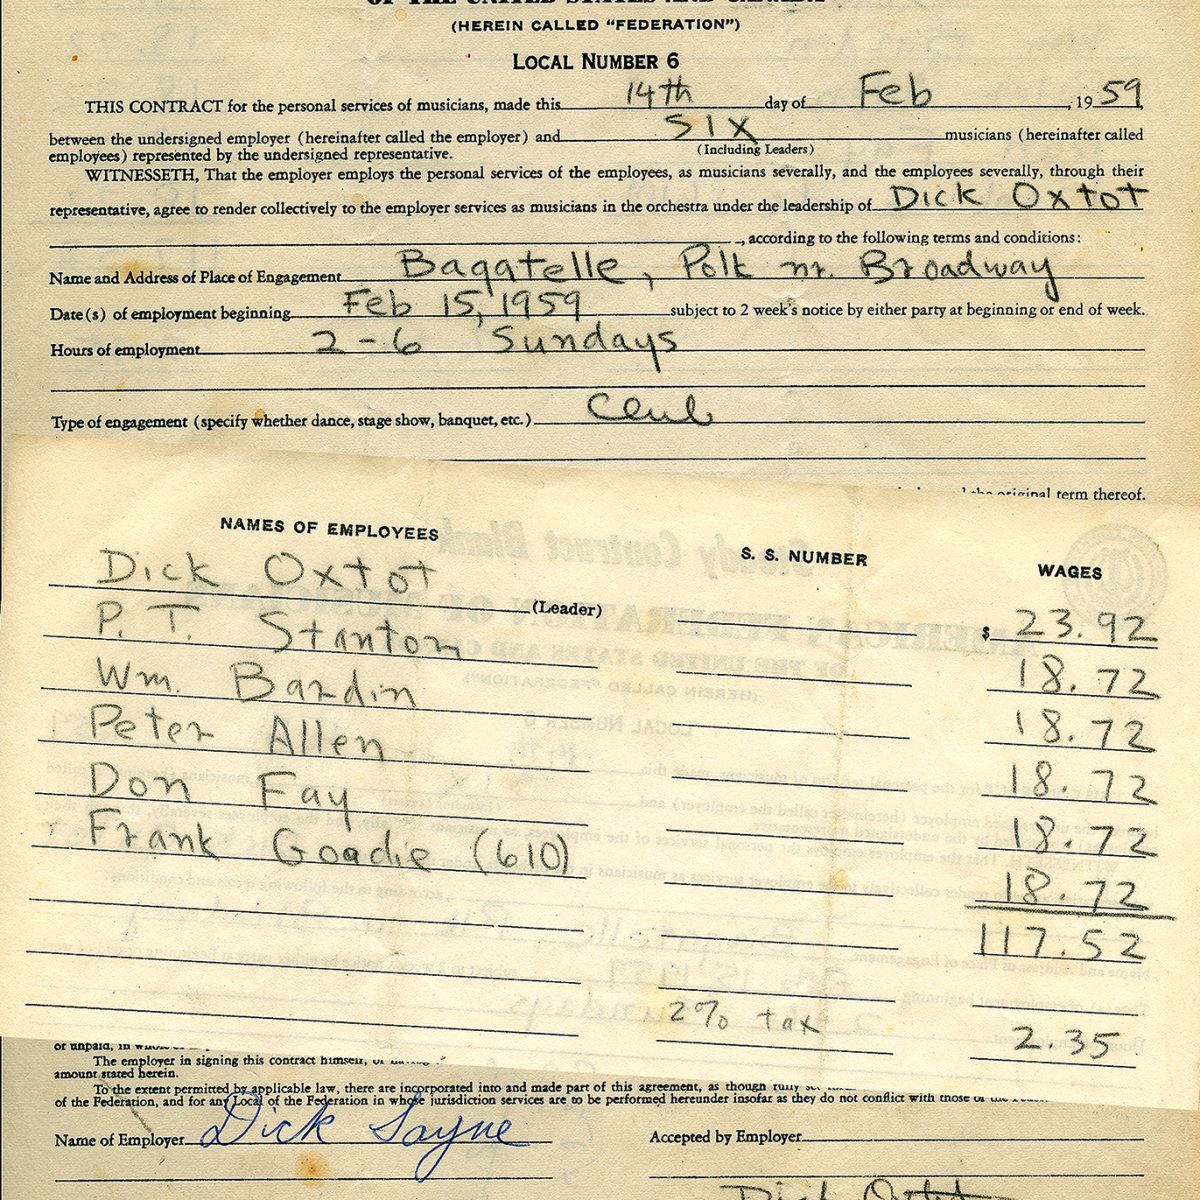 OF THE UNITED STATES AND CANADA
(HEREIN CALLED "FEDERATION")
LOCAL NUMBER 6
THIS CONTRACT for the personal services of musicians, made this 14th day of Feb, 1959
between the undersigned employer (hereinafter called the employer) and SIX musicians (hereinafter called
(Including Leaders)
employees) represented by the undersigned representative.
WITNESSETH, That the employer employs the personal services of the employees, as musicians severally, and the employees severally, through their
representative, agree to render collectively to the employer services as musicians in the orchestra under the leadership of Dick Oxtot
, according to the following terms and conditions:
Name and Address of Place of Engagement Bagatelle, Polk nr. Broadway
Date(s) of employment beginning Feb 15, 1959 subject to 2 week's notice by either party at beginning or end of week.
Hours of employment 2-6 Sundays
Type of engagement (specify whether dance, stage show, banquet, etc.) Club
the original term thereof.
NAMES OF EMPLOYEES S. S. NUMBER WAGES
Dick Oxtot (Leader) $ 23.92
P. T. Stanton 18.72
Wm. Bardin 18.72
Peter Allen 18.72
Don Fay 18.72
Frank Goadie (610) 18.72
117.52
2% tax 2.35
or unpaid, in
The employer in signing this contract himself,
amount stated herein.
To the extent permitted by applicable law, there are incorporated into and made part of this agreement, as though fully
of the Federation, and for any Local of the Federation in whose jurisdiction services are to be performed hereunder insofar as they do not conflict with those of the
Name of Employer Dick Sayne Accepted by Employer
Dick Oxtot